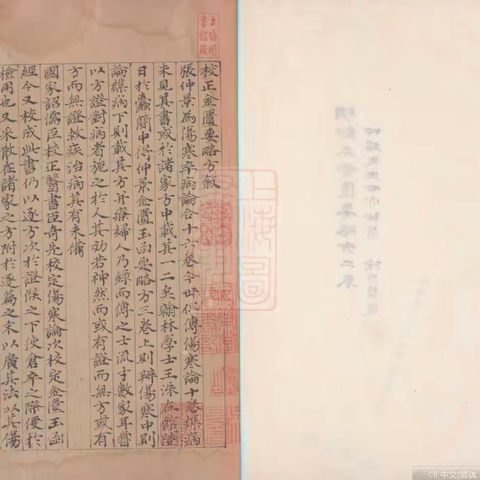 上海图
書館藏
校正金匱要略方敘
張仲景爲傷寒卒病論合十六卷今世但傳傷寒論十卷雜病
未見其書或於諸家方中載其一二矣翰林學士王洙在館閣
日於蠹簡中得仲景金匱玉函要略方三卷上則辨傷寒中則
論雜病下則載其方并療婦人乃録而傳之士流才數家耳嘗
以方證對病者施之於人其効若神然而或有證而無方或有
方而無證救疾治病其有未備
國家詔儒臣校正醫書臣奇先校定傷寒論次校定金匱玉函
經今又校成此書仍以逐方次於證候之下使倉卒之際便於
檢用也又采散在諸家之方附於逐篇之末以廣其法以其傷
中文(简体